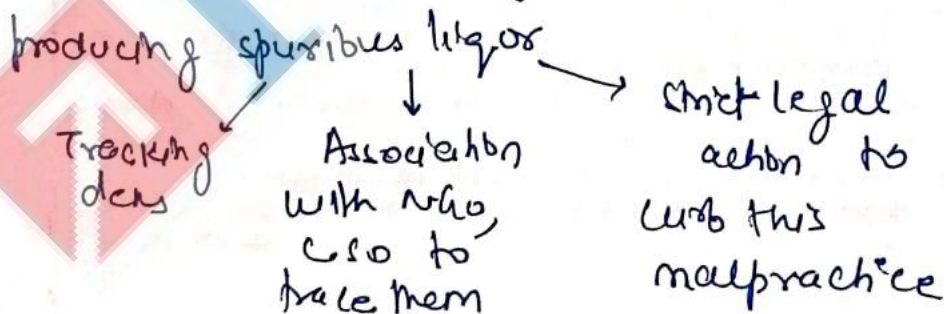 producing spuribus liqor
Tracking
dens
Association
with NGO,
CSO to
trace them
strict legal
action to
curb this
malpractice